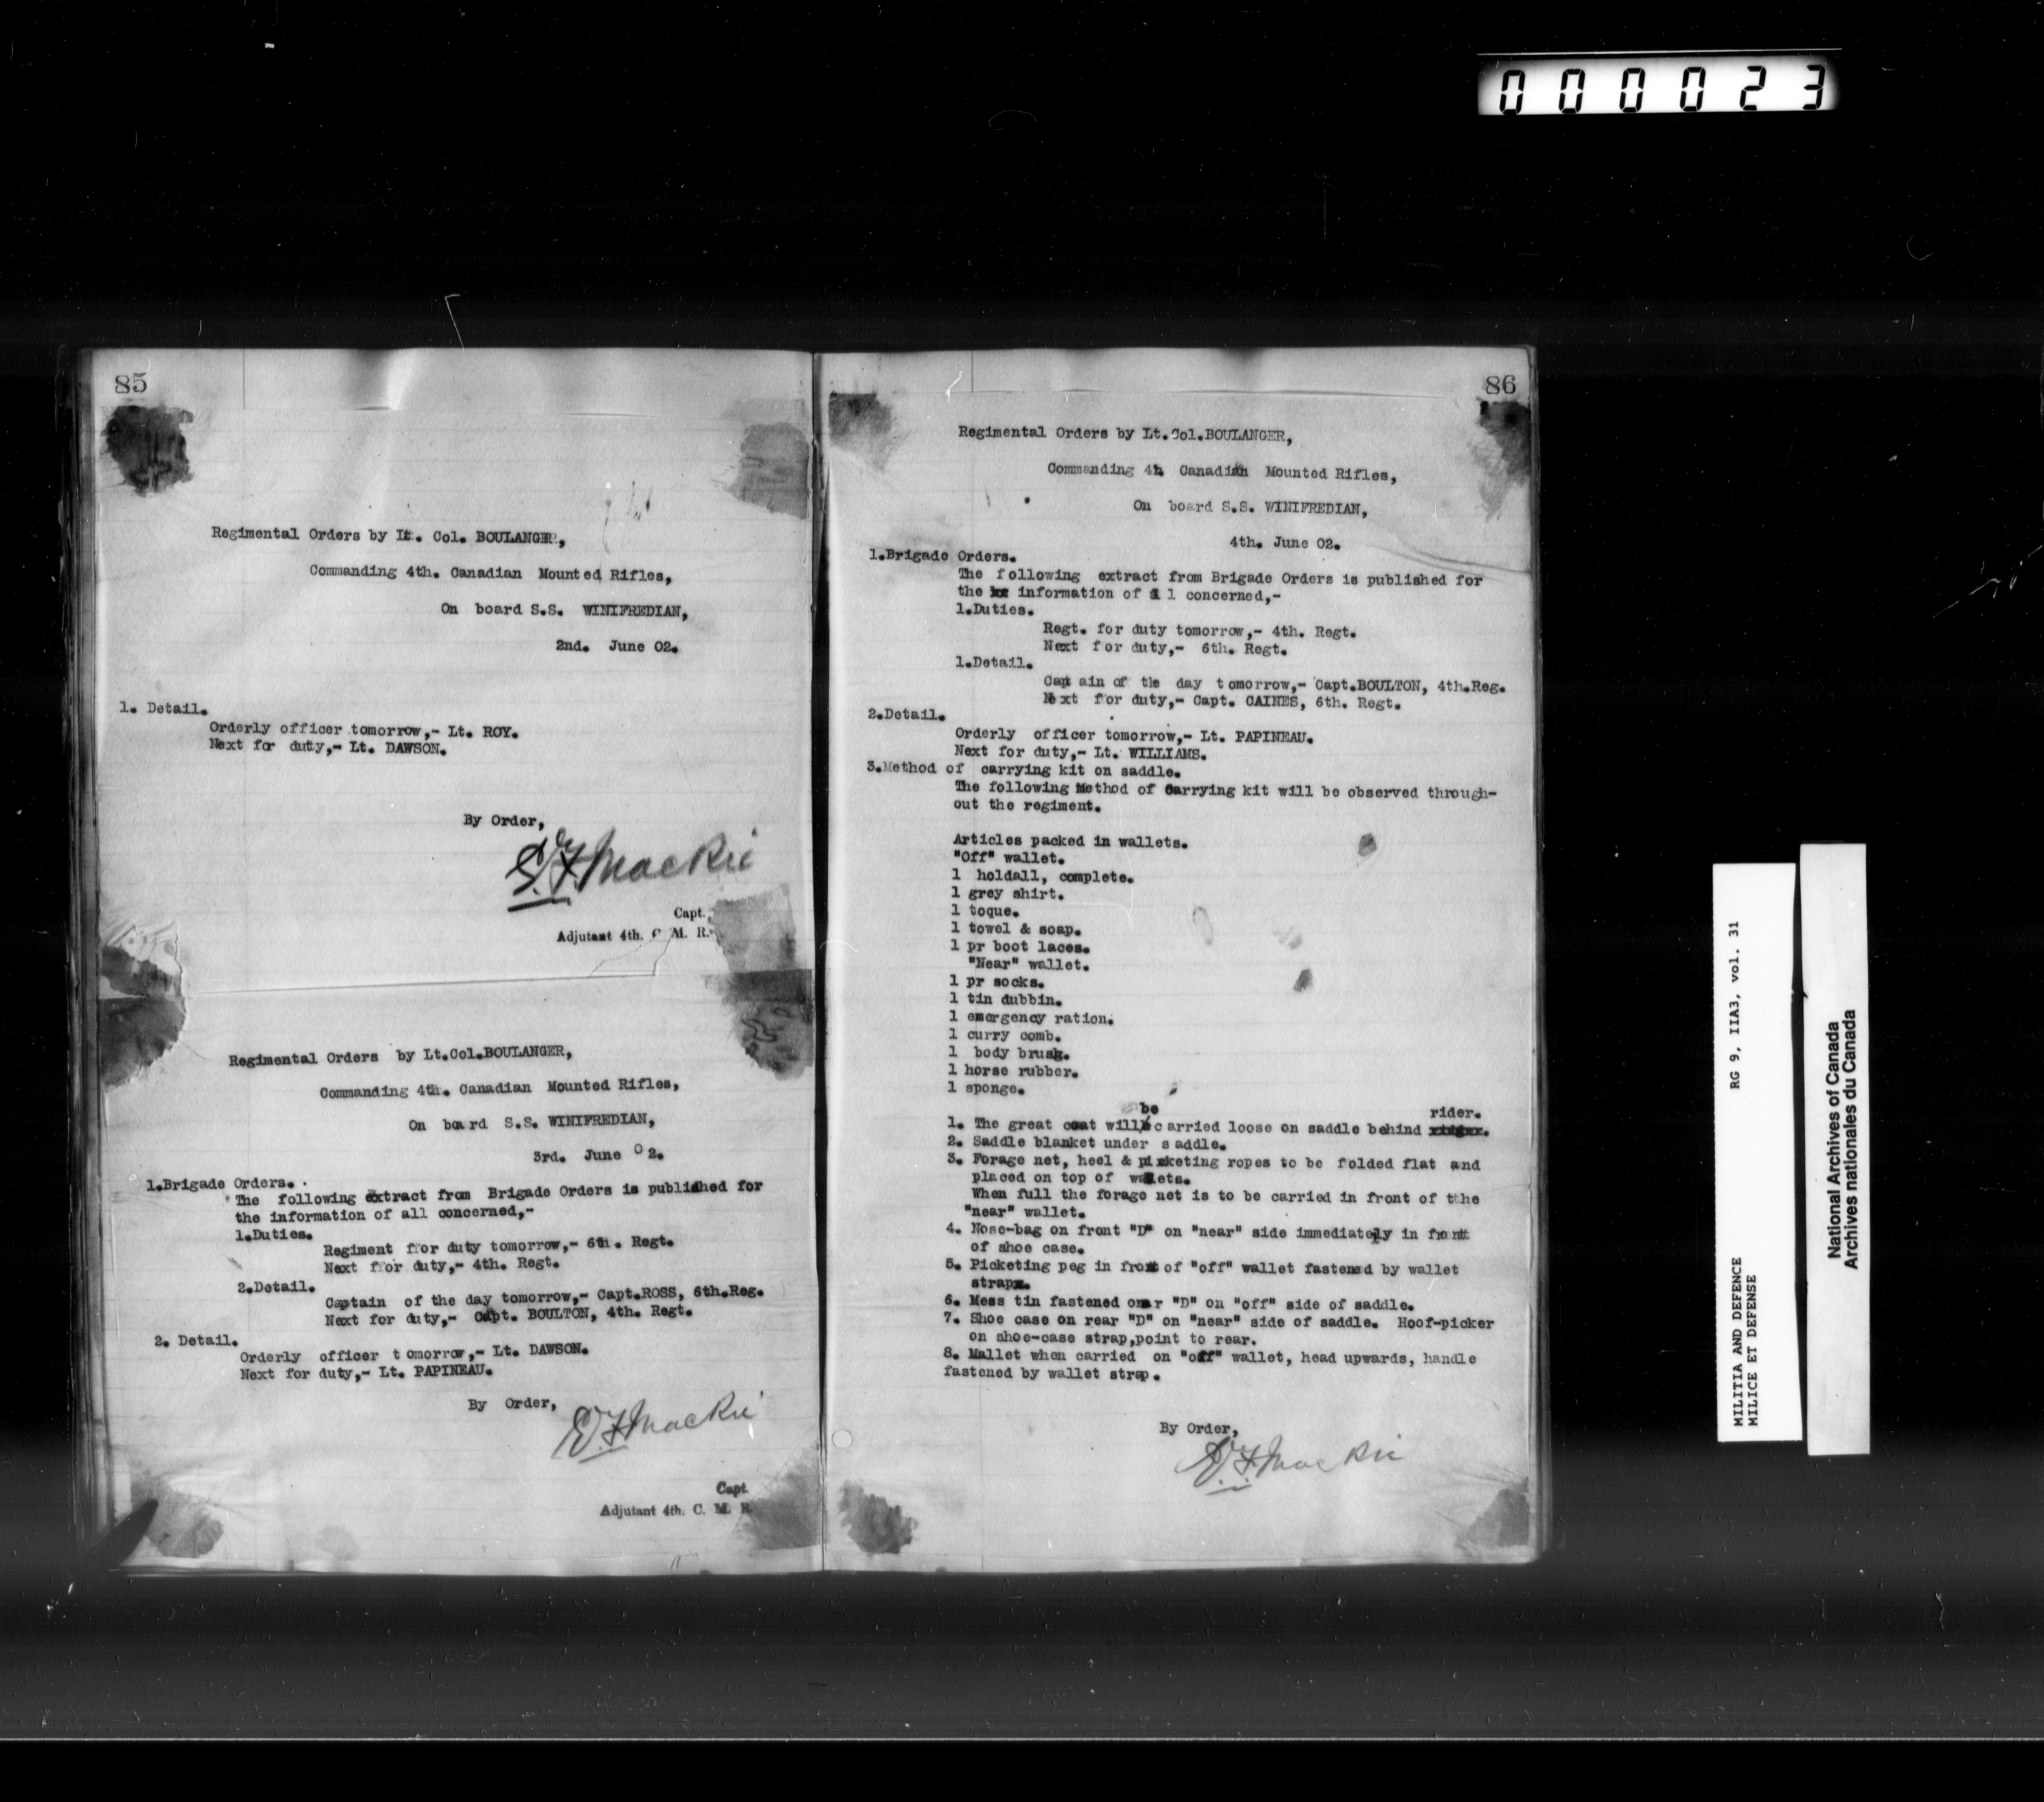 000023
85
Regimental Orders by Lt. Col. BOULANGER,
Commanding 4th. Canadian Mounted Rifles,
On board S.S. WINIFREDIAN,
2nd. June 02.
1. Detail.
Orderly officer tomorrow,- Lt. ROY.
Next for duty,- Lt. DAWSON.
By Order,
Mackie
Capt.
Adjutant 4th. C. M. R.
Regimental Orders by Lt.Col.BOULANGER,
Commanding 4th. Canadian Mounted Rifles,
On board S.S. WINIFREDIAN,
3rd. June 02.
1.Brigade Orders.
The following extract from Brigade Orders is published for
the information of all concerned,-
1.Duties.
Regiment for duty tomorrow,- 6th. Regt.
Next for duty,- 4th. Regt.
2.Detail.
Captain of the day tomorrow,- Capt.ROSS, 6th.Reg.
Next for duty,- Capt. BOULTON, 4th. Regt.
2. Detail.
Orderly officer tomorrow,- Lt. DAWSON.
Next for duty,- Lt. PAPINEAU.
By Order,
Mackie
Capt.
Adjutant 4th. C. M. R
86
Regimental Orders by Lt.Col.BOULANGER,
Commanding 4h Canadian Mounted Rifles,
On board S.S. WINIFREDIAN,
4th. June 02.
1.Brigade Orders.
The following extract from Brigade Orders is published for
the information of all concerned,-
1.Duties.
Regt. for duty tomorrow,- 4th. Regt.
Next for duty,- 6th. Regt.
1.Detail.
Captain of the day tomorrow,- Capt.BOULTON, 4th.Reg.
Next for duty,- Capt. CAINES, 6th. Regt.
2.Detail.
Orderly officer tomorrow,- Lt. PAPINEAU.
Next for duty,- Lt. WILLIAMS.
3.Method of carrying kit on saddle.
The following Method of Carrying kit will be observed through-
out the regiment.
Articles packed in wallets.
"Off" wallet.
1 holdall, complete.
1 grey shirt.
1 toque.
1 towel & soap.
1 pr boot laces.
"Near" wallet.
1 pr socks.
1 tin dubbin.
1 emergency ration.
1 curry comb.
1 body brush.
1 horse rubber.
1 sponge.
1. The great coat will be carried loose on saddle behind rider.
2. Saddle blanket under saddle.
3. Forage net, heel & picketing ropes to be folded flat and
placed on top of wallets.
When full the forage net is to be carried in front of tthe
"near" wallet.
4. Nose-bag on front "D" on "near" side immediately in front
of shoe case.
5. Picketing peg in front of "off" wallet fastened by wallet
strap.
6. Mess tin fastened on r "D" on "off" side of saddle.
7. Shoe case on rear "D" on "near" side of saddle. Hoof-picker
on shoe-case strap,point to rear.
8. Mallet when carried on "off" wallet, head upwards, handle
fastened by wallet strap.
By Order,
Mackie
MILITIA AND DEFENCE RG 9, IIA3, vol. 31
MILICE ET DEFENSE
National Archives of Canada
Archives nationales du Canada